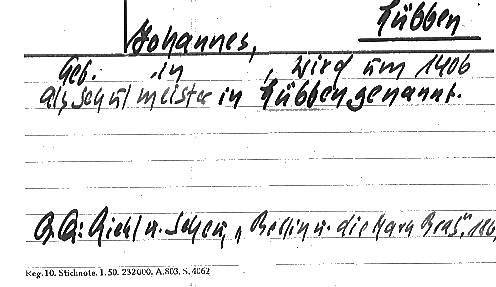 Lübben
Johannes,
Geb. in , wird um 1406
als Schulmeister in Lübben genannt.
Qu.: Riehl u. Scheu, „Berlin u. die Mark Brdbg“, 186
Reg. 10. Stichnote. 1.50. 232000. A.803. S.4062